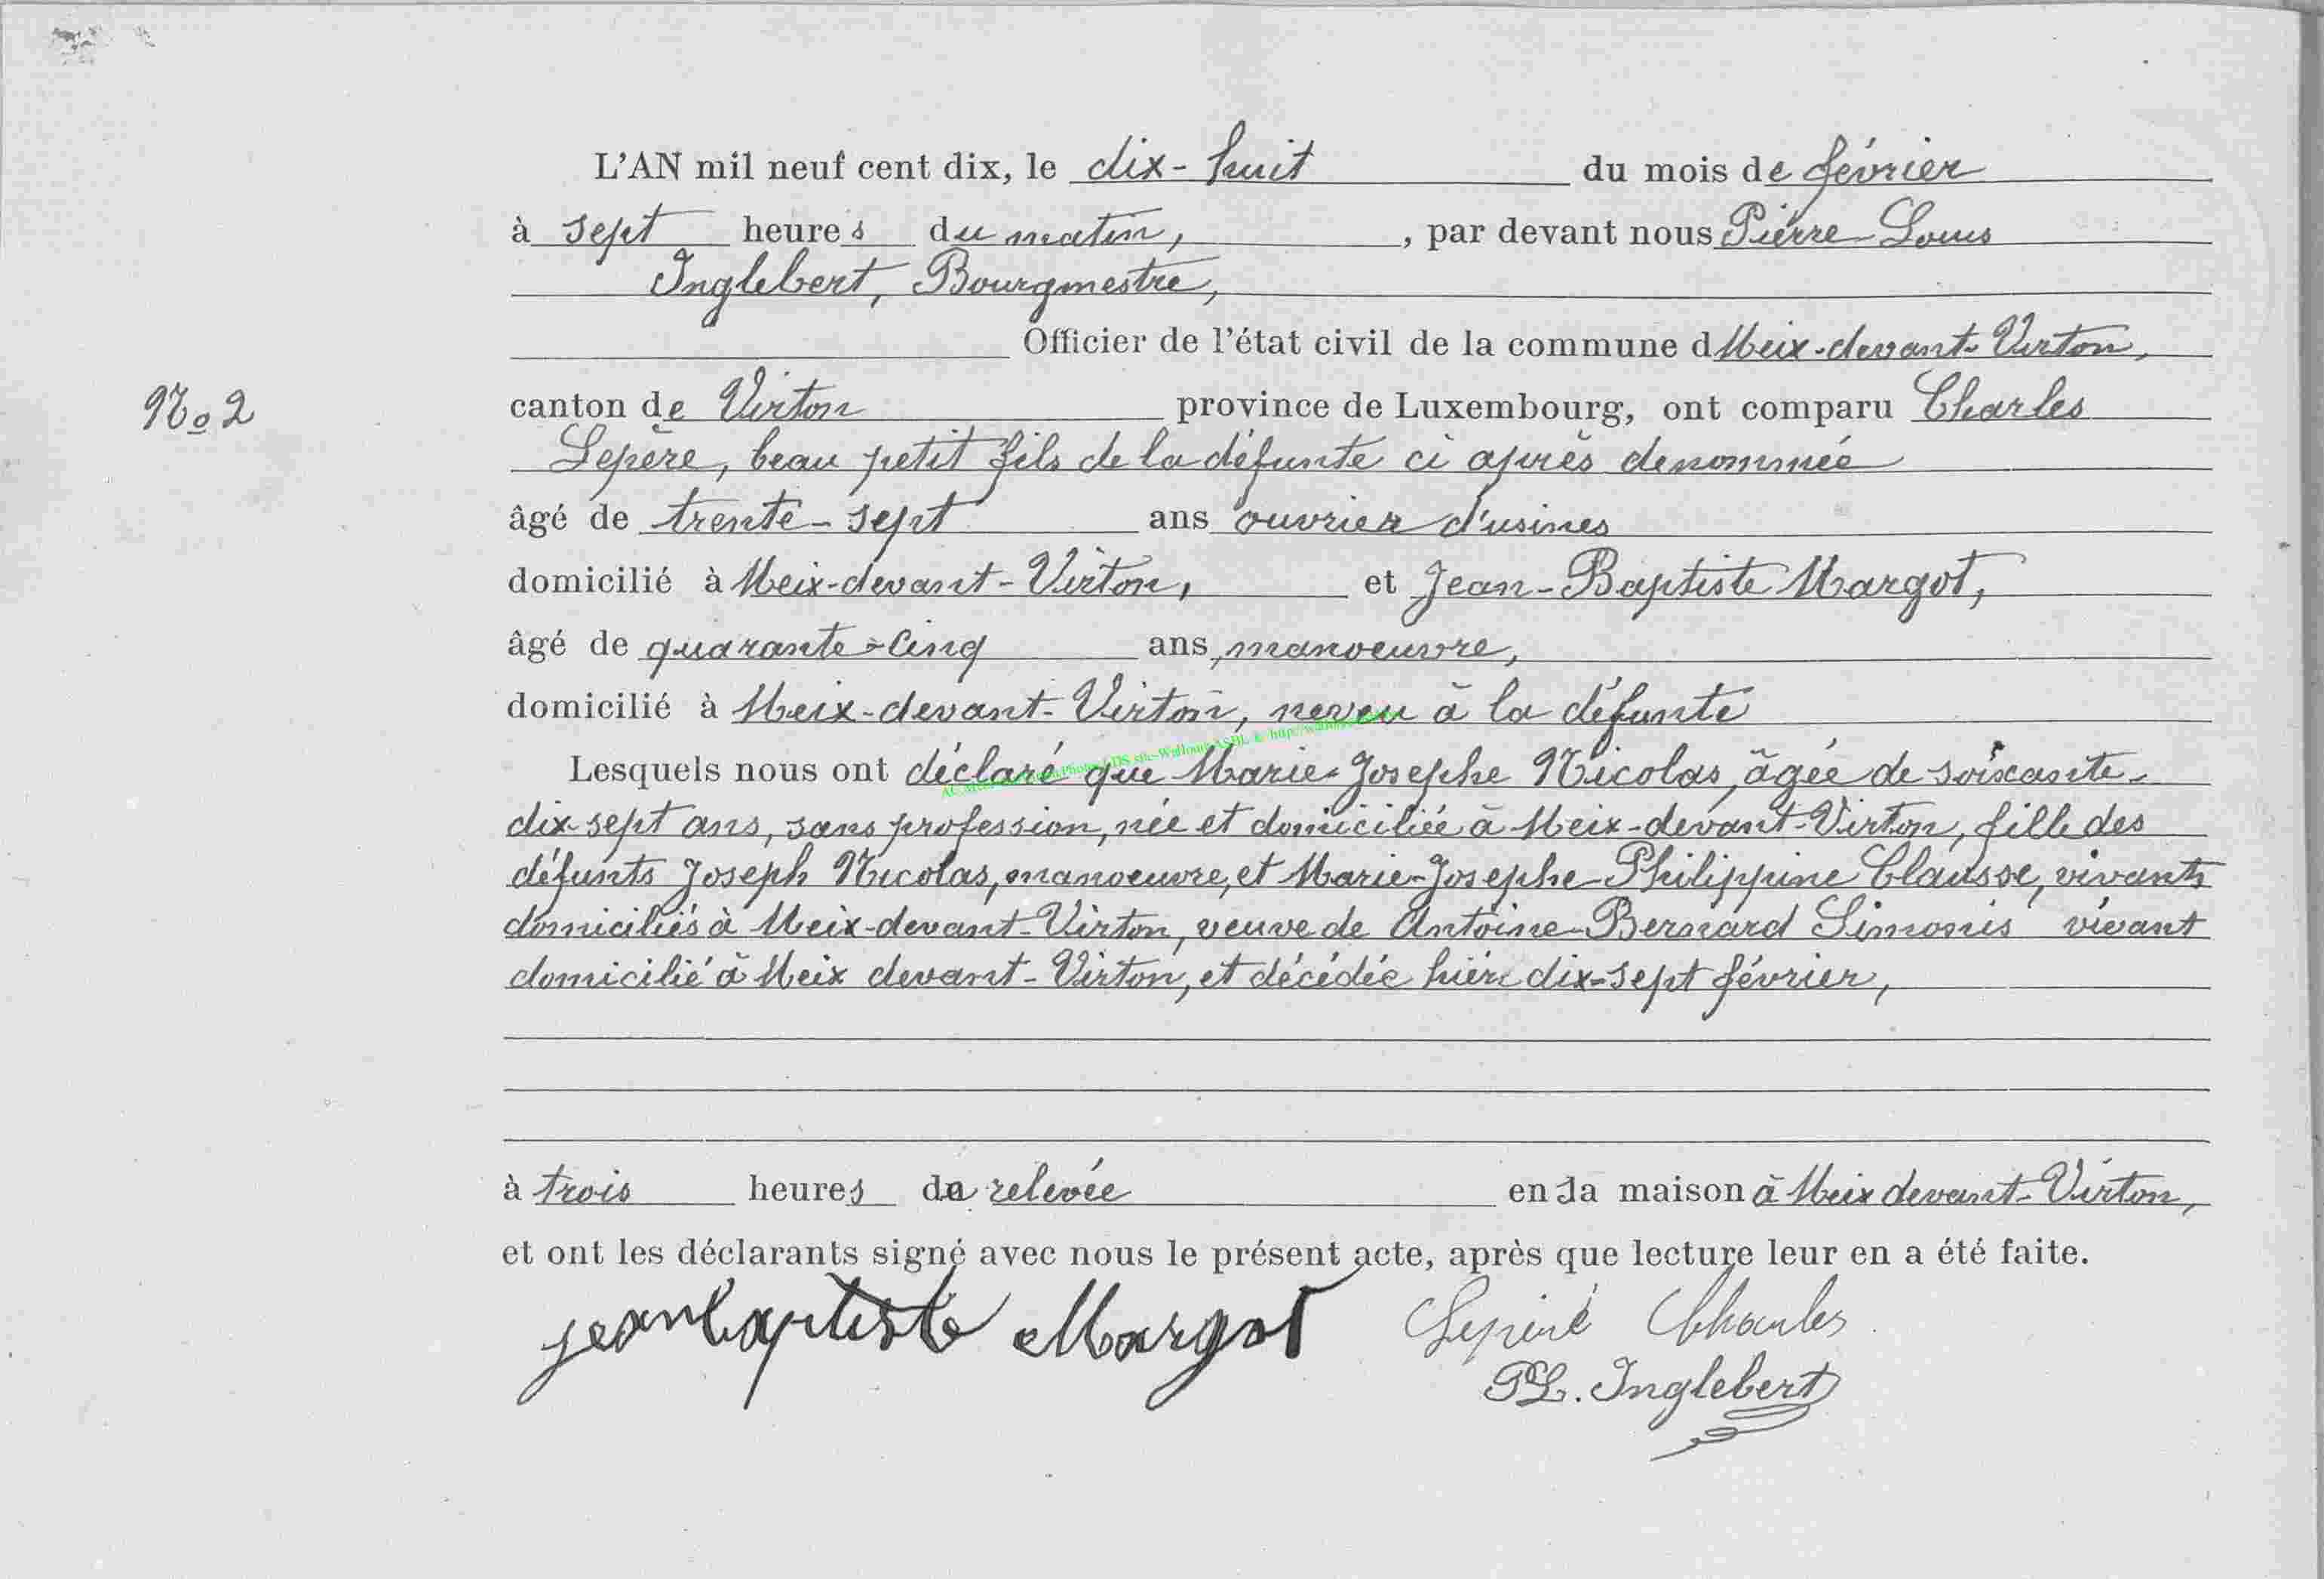 L'AN mil neuf cent dix, le dix-huit du mois de février
à sept heures du matin, , par devant nous Pierre-Louis
Inglebert, Bourgmestre,
Officier de l'état civil de la commune d Meix-devant-Virton,
No 2
canton de Virton province de Luxembourg, ont comparu Charles
Lepère, beau petit fils de la défunte ci après denommée
âgé de trente-sept ans ouvrier d'usines
domicilié à Meix-devant-Virton, et Jean-Baptiste Margot,
âgé de quarante-cinq ans, manoeuvre,
domicilié à Meix-devant-Virton, neveu à la défunte
Lesquels nous ont déclaré que Marie-Josephe Nicolas, âgée de soixante-
dix-sept ans, sans profession, née et domiciliée à Meix-devant-Virton, fille des
défunts Joseph Nicolas, manoeuvre, et Marie-Josephe-Philippine Clausse, vivants
domiciliés à Meix-devant-Virton, veuve de Antoine-Bernard Simonis vivant
domicilié à Meix devant-Virton, et décédée hier dix-sept février,
à trois heures de relevée en la maison à Meix devant-Virton,
et ont les déclarants signé avec nous le présent acte, après que lecture leur en a été faite.
jeanbaptiste Margot Lepère Charles
PL. Inglebert